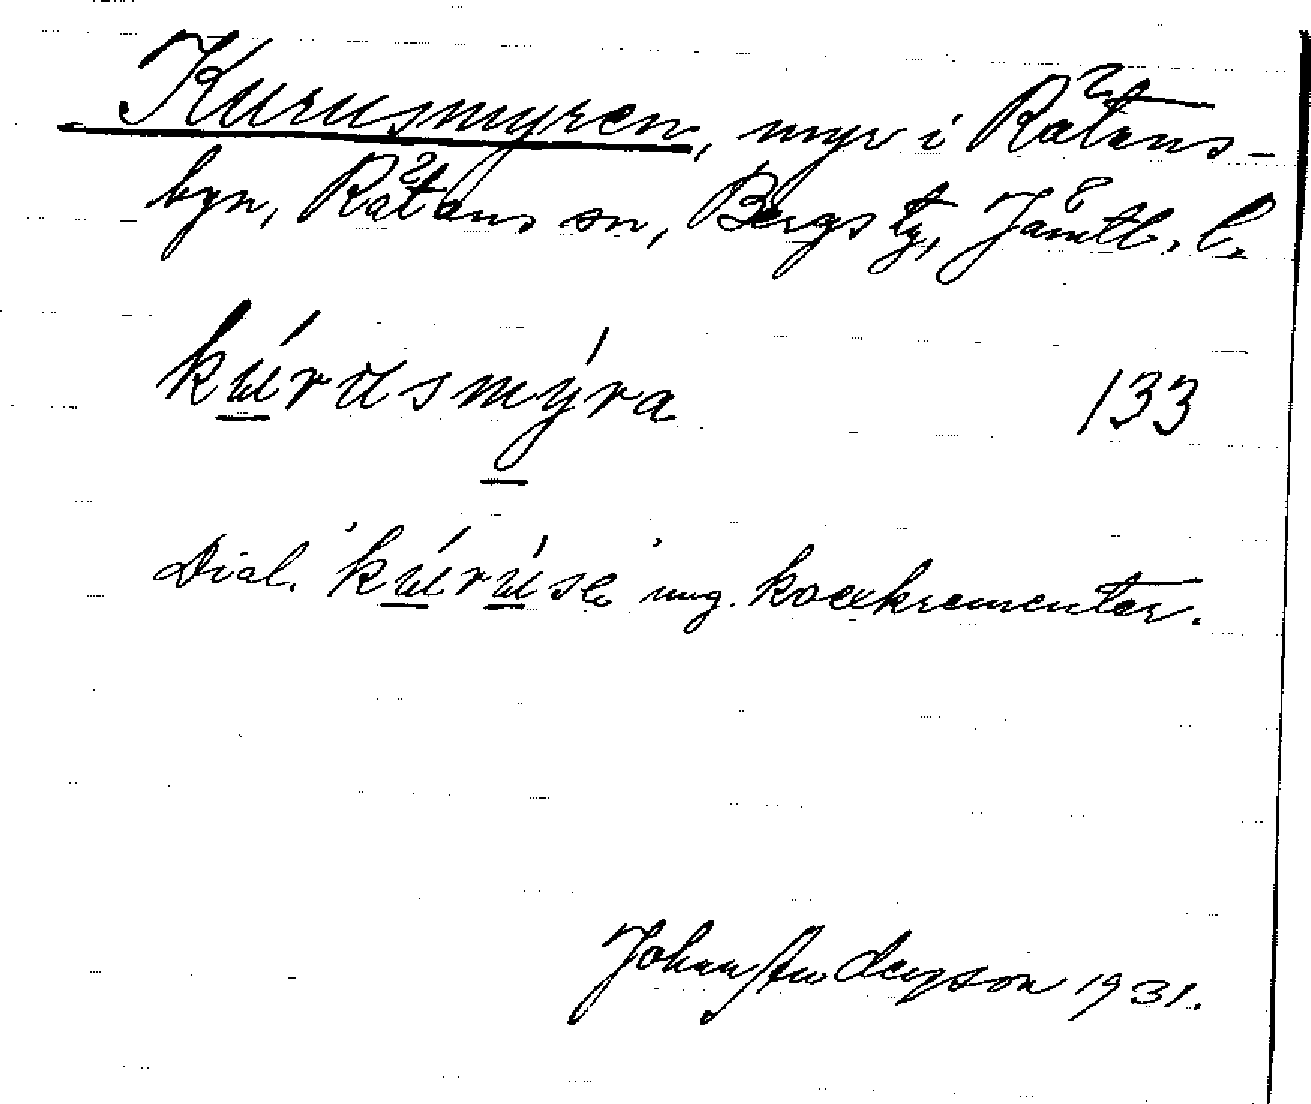 Kurusmyren, myr i Råtans-
byn, Råtans sn, Bergs tg, Jämtl. l.
kúrusmýra 133
Dial. kúrúse ung. koexkrementer.
Johan Anderson 1931.